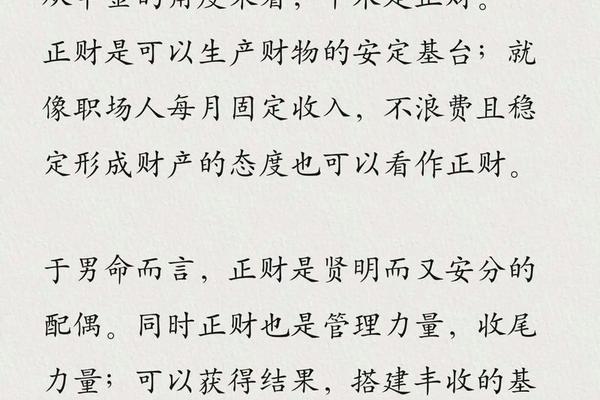 正财是可以生产财物的安定基台；就
像职场人每月固定收入，不浪费且稳
定形成财产的态度也可以看作正财。
于男命而言，正财是贤明而又安分的
配偶。同时正财也是管理力量，收尾
力量；可以获得结果，搭建丰收的基